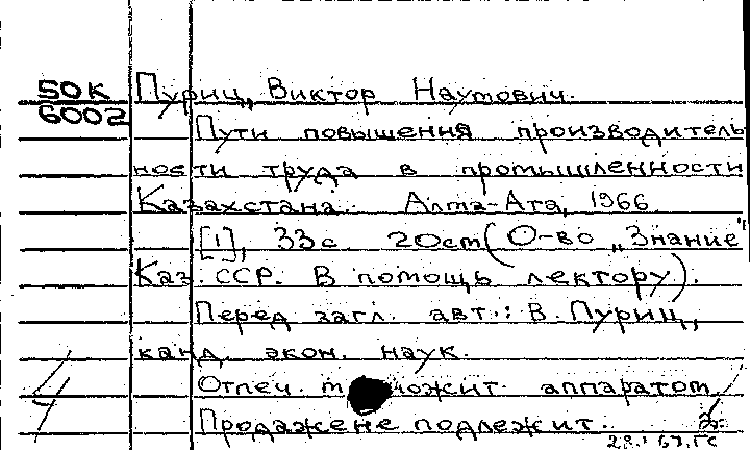 50К Пуриц, Виктор Наутович.
6002 Пути повышения производитель
ности труда в промышленности
Казахстана. Алма-Ата, 1966
[1], 33с 20см (О-во „Знание"
Каз. ССР. В помощь лектору).
Перед загл. авт.: В. Пуриц,
канд. экон. наук.
Отпеч. аппаратом
Продаже не подлежит.